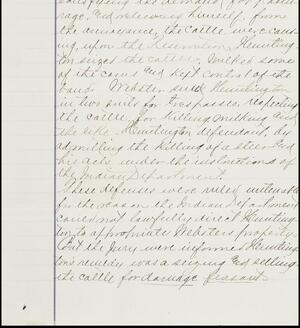 satisfying his demand (for pastur-
age, and releiveing himself, from
the annoyance, the cattle, were caus-
ing, upon the Reservation, Hunting-
ton siezes the cattle; milked some
of the cows and kept control of the
band. Webster sued Huntington
in two suits for trespasses, respecting
the cattle, for killing, milking and
the like. Huntington defendant, by
admitting the killing of a steer and
his acts, under the instructions of
the Indian Department.
These defenses were ruled untenable
for the reason the Indian Department
could not lawfully direct Hunting-
ton to appropriate Websters property.
But the Jury were informed Hunting-
tons remedy was a siezing and selling
the cattle for damage feasant.